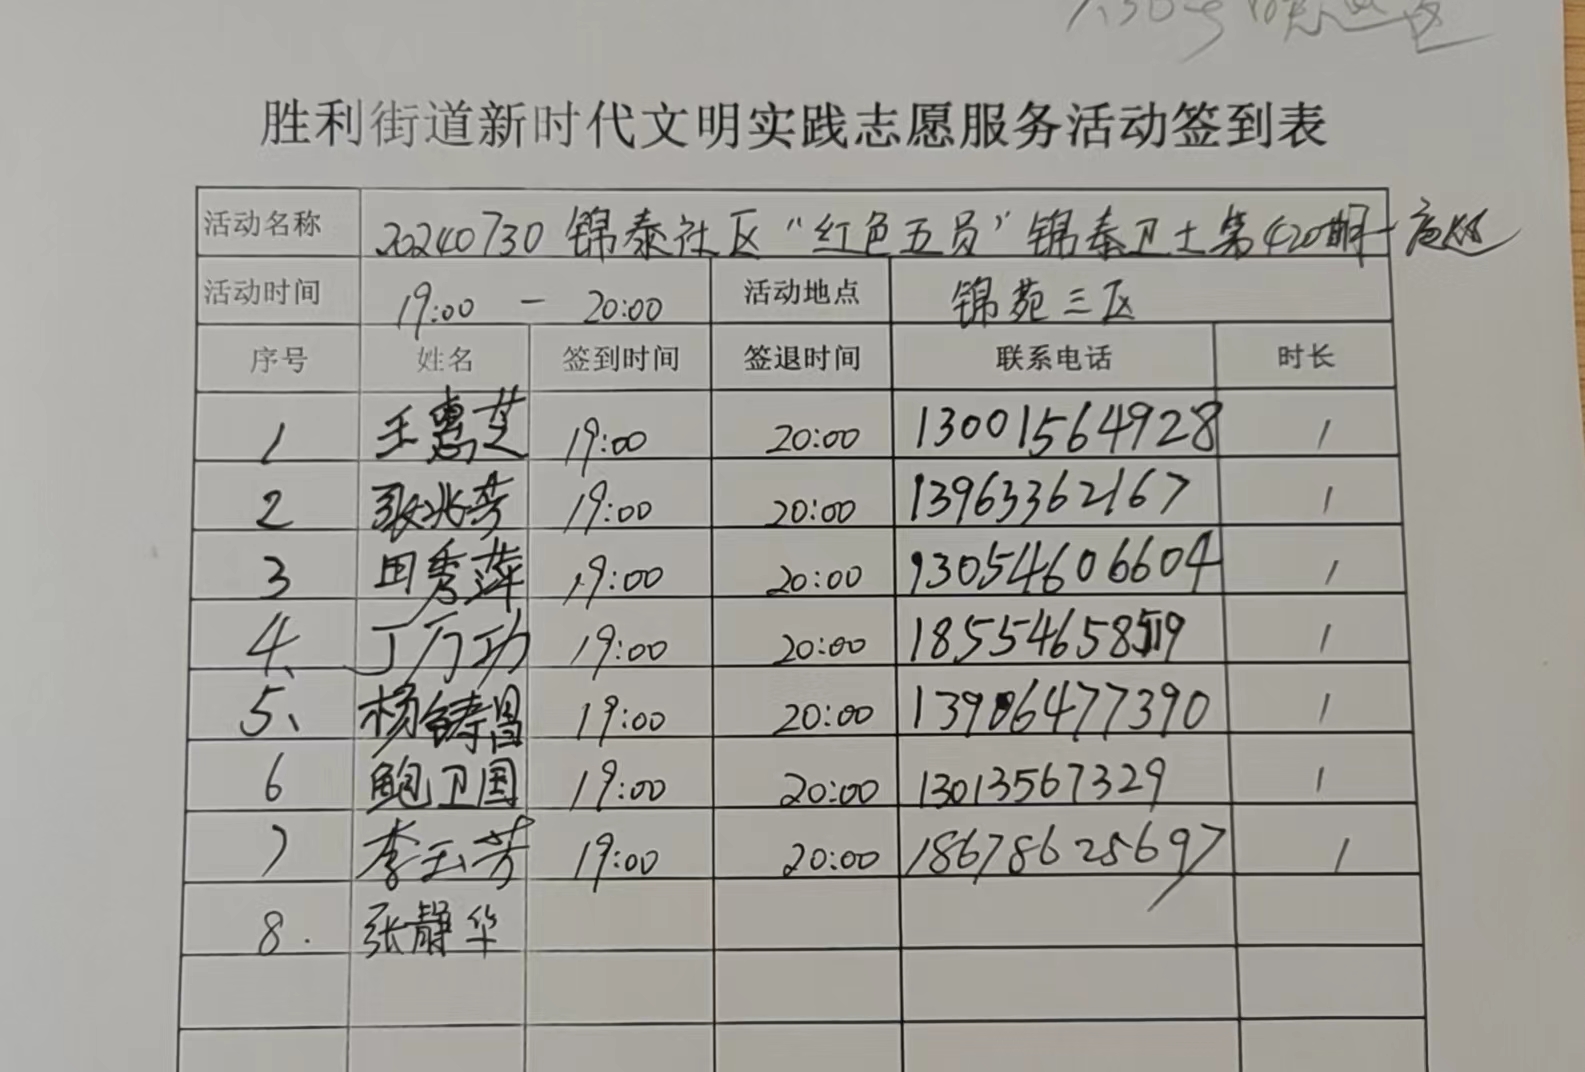 胜利街道新时代文明实践志愿服务活动签到表
活动名称 20240730 锦泰社区“红色五员”锦泰卫士第420期-夜巡
活动时间 19:00 - 20:00 活动地点 锦苑三区
序号 姓名 签到时间 签退时间 联系电话 时长
1 王惠芝 19:00 20:00 13001564928 1
2 张兆芳 19:00 20:00 13963362167 1
3 田秀萍 19:00 20:00 13054606604 1
4、 丁万功 19:00 20:00 1
5、 杨铸昌 19:00 20:00 13906477390 1
6 鲍卫国 19:00 20:00 13013567329 1
7 李玉芳 19:00 20:00 18678628697 1
8. 张静华